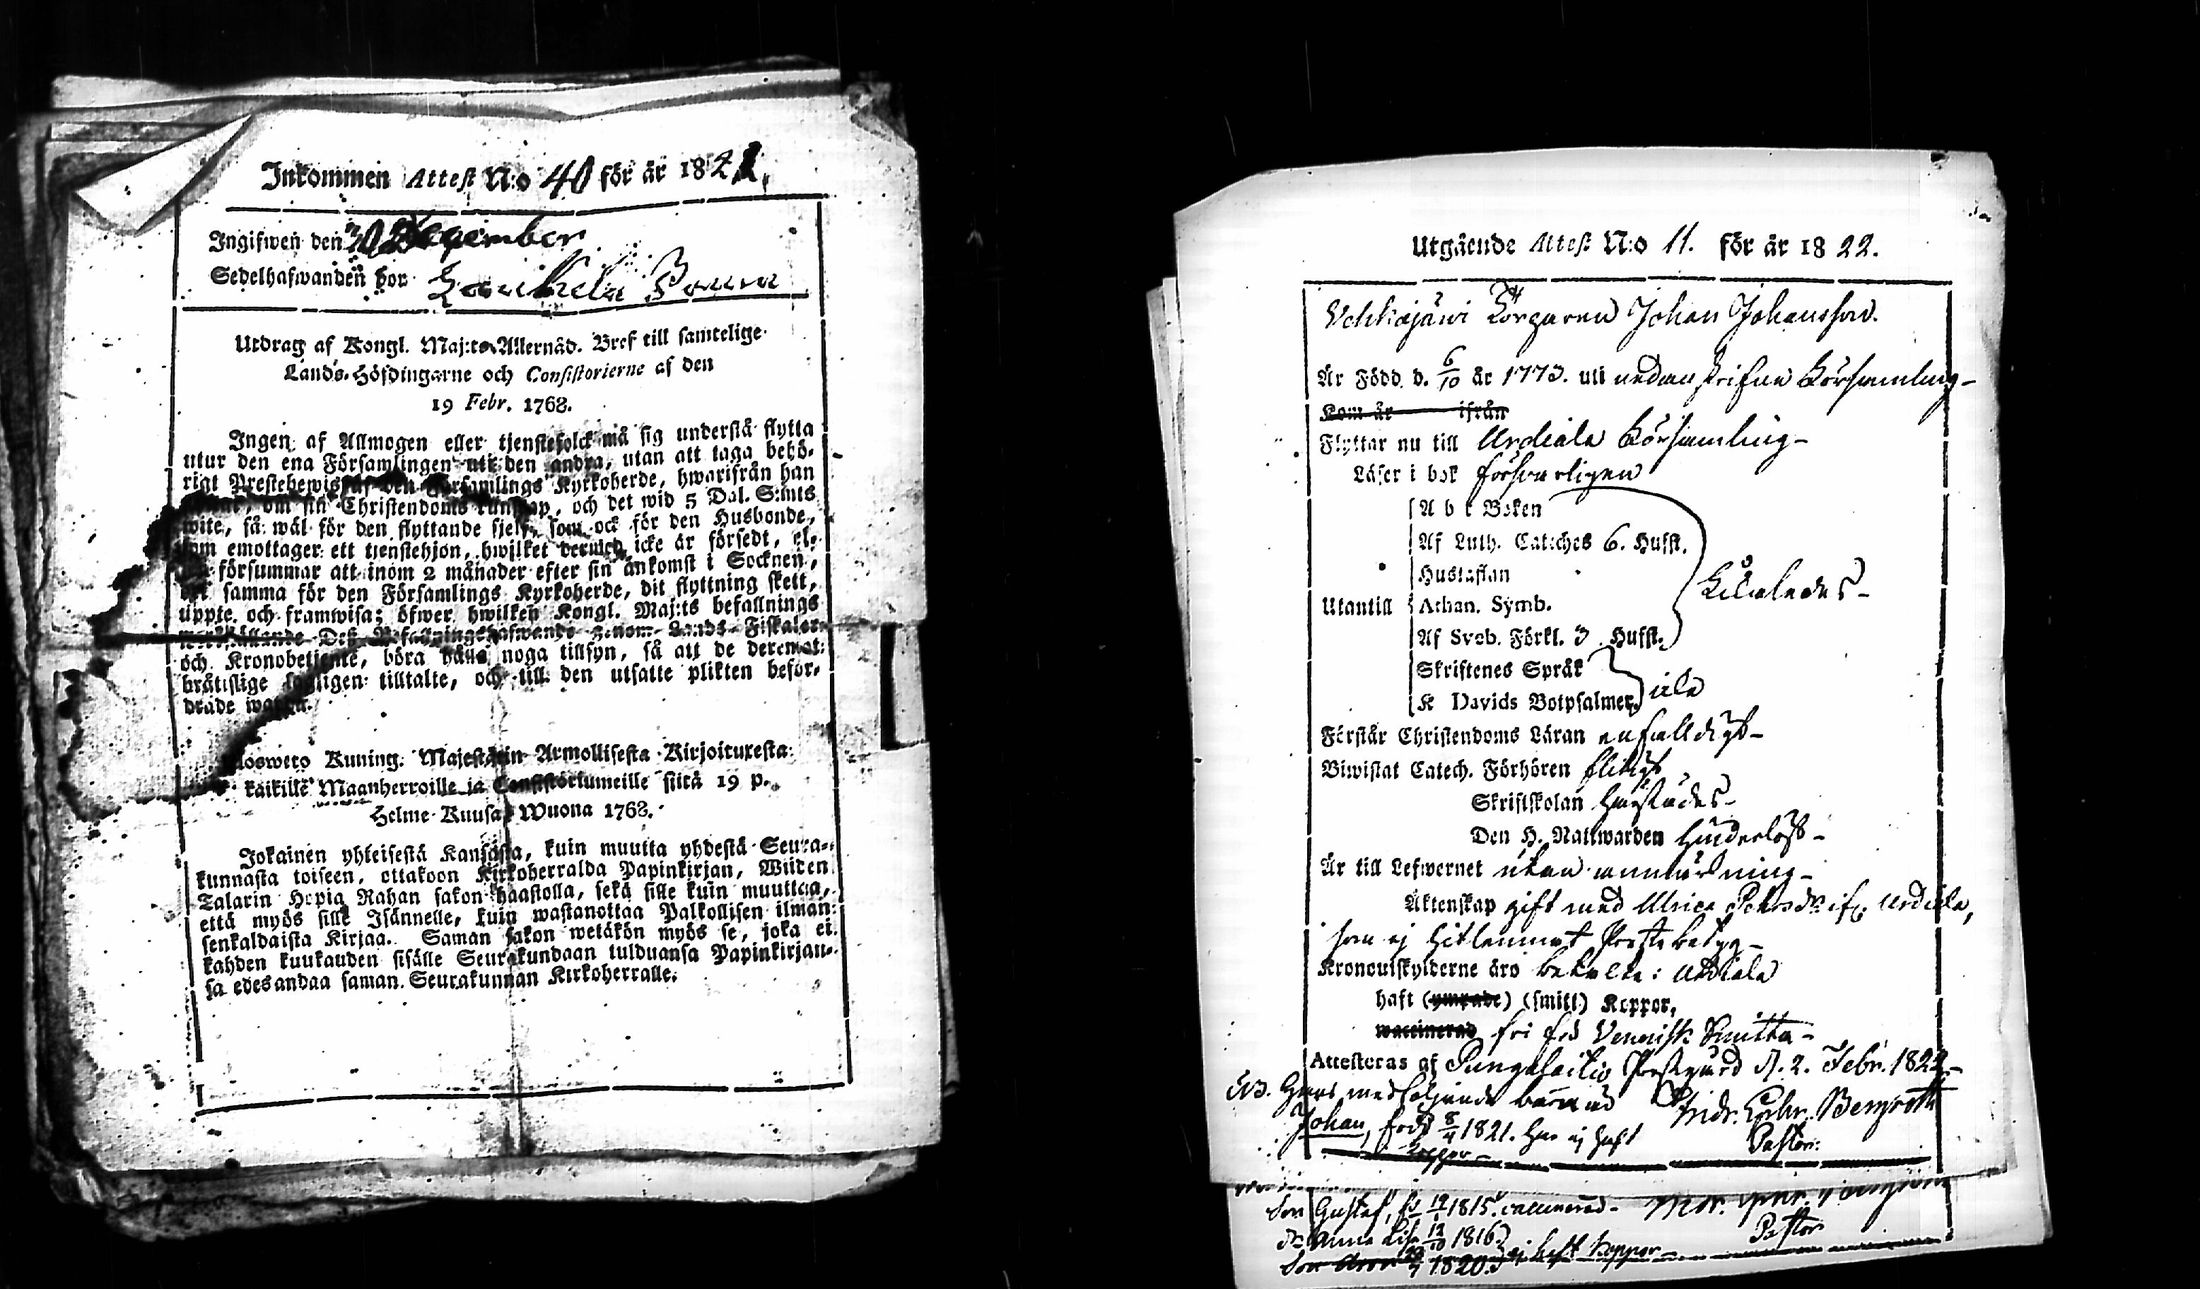 Inkommen Attest N:o 40 för år 1821.
Ingifwen den 30 December
Sedelhafwanden bor
Utdrag af Kongl. Maj:ts Allernåd. Bref till samtelige
Lands-Höfdingarne och Consistorierne af den
19 Febr. 1768.
Ingen af Allmogen eller tjenstefolck må sig understå flytta
utur den ena Församlingen uti den andra, utan att taga behö-
rigt Prestebewis af den Församlings Kyrkoherde, hwarifrån han
om sin Christendoms kunskap, och det wid 5 Dal. S:mts
wite, så wäl för den flyttande sjelf, som ock för den Husbonde,
som emottager ett tjenstehjon, hwilket dermed icke är försedt, el-
försummar att inom 2 månader efter sin ankomst i Socknen,
samma för den Församlings Kyrkoherde, dit flyttning skett,
uppte och framwisa; öfwer hwilken Kongl. Maj:ts befallnings
werkställande Deß Befallningshafwande genom Lands-Fiskaler
och Kronobetjente, böra hålla noga tillsyn, så att de deremot
bråttslige lagligen tilltalte, och till den utsatte plikten beför-
drade warda.
Ulosweto Kuning. Majestätin Armollisesta Kirjoituxesta
kaikille Maanherroille ja Consistoriumeille siitä 19 p.
Helme Kuusa Wuona 1768.
Jokainen yhteisestä Kansasta, kuin muutta yhdestä Seura-
kunnasta toiseen, ottakoon Kirkoherralda Papinkirjan, Wiiden
Talarin Hopia Rahan sakon haastolla, sekä sille kuin muuttaa,
että myös sille Isännelle, kuin wastanottaa Palkollisen ilman
senkaldaista Kirjaa. Saman sakon wetäkön myös se, joka ei
kahden kuukauden sisälle Seurakundaan tulduansa Papinkirjan-
sa edesandaa saman Seurakunnan Kirkoherralle.
Utgående Attest N:o 11. för år 1822.
Johan Johansson.
Är Född d. 6/10 år 1773. uti nedanskrifne Församling
Kom år ifrån
Flyttar nu till Urdiala Församling
Läser i bok försvarligen
A b c Boken
Af Luth. Cateches 6. Hufst.
Hustaflan
Utantill Athan. Symb.
Af Sveb. Förkl. 3 Hufst.
Skriftenes Språk
K Davids Botpsalmer
Förstår Christendoms Läran enfalldigt
Biwistat Catech. Förhören flitigt
Skriftskolan
Den H. Nattwarden hinderlöst
Är till Lefwernet utan anmärkning
Äktenskap gift med Ulrica Urdiala,
som ej hitlemnat Prestebetyg
Kronoutskylderne äro betalte: Urdiala
haft (ympade) (smitt) Koppor,
waccinerad fri frå Venerisk Smitta
Attesteras af Pungalaitio Prestgård d. 2. Febr. 1822
NB. Hans medföljande barn äro
Johan, född 8/4 1821. har ej haft
Koppor
Pastor.
Son Gustaf, fö 19/ 1815. vaccinerad
Anna Lisa 12/10 1816
Pastor
Son 1820. ej haft koppor